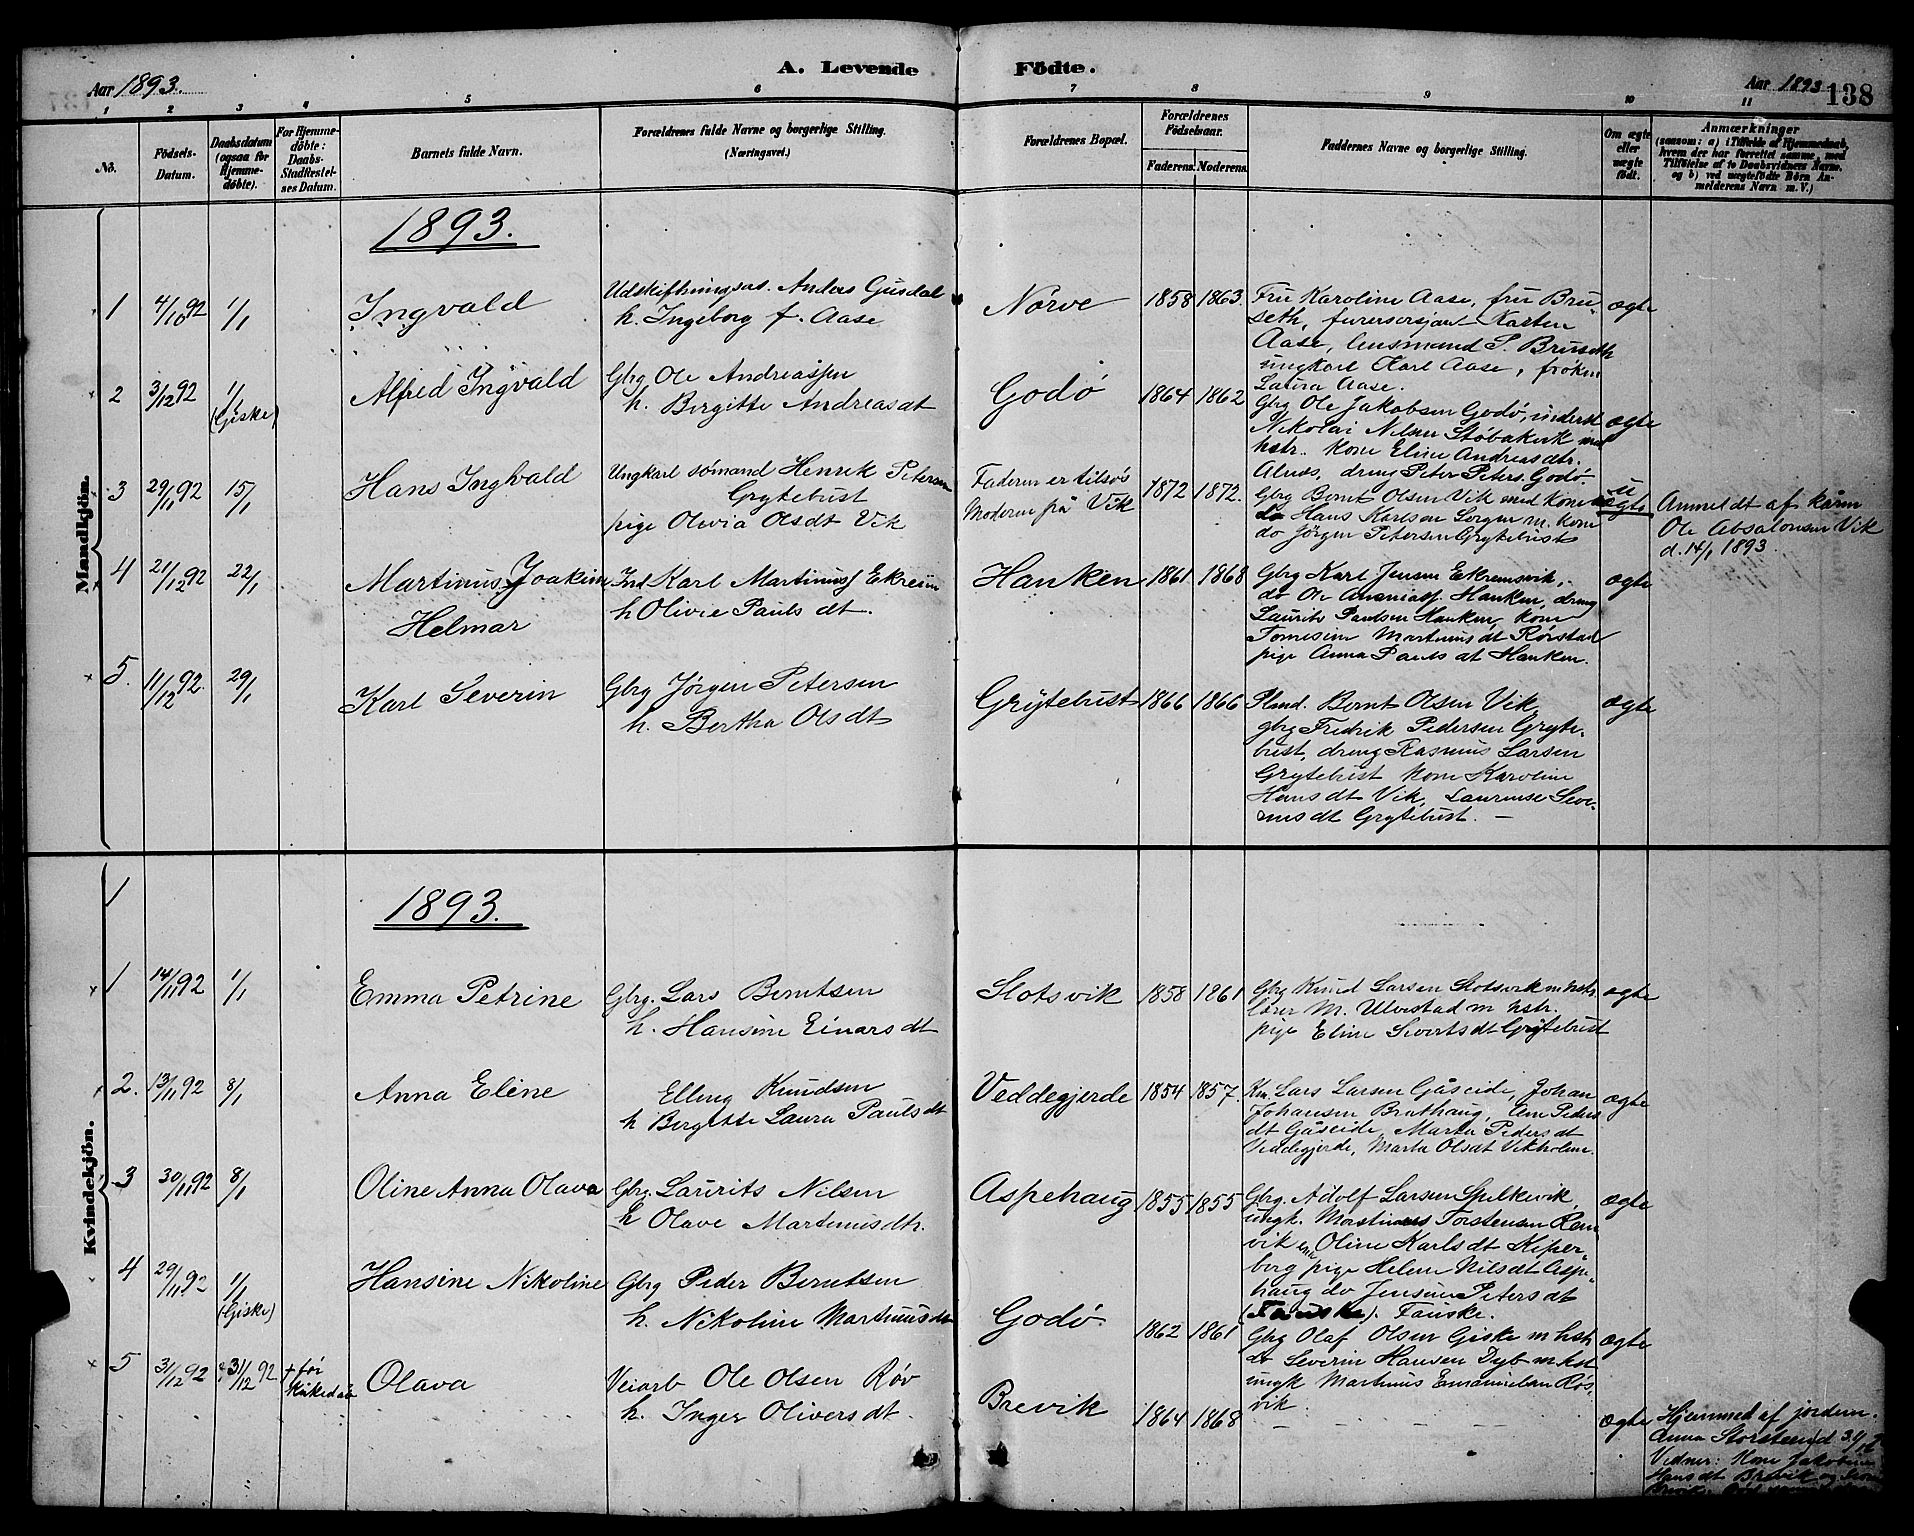 Aar 1893.
A. Levende Födte.
Aar 1893
138
1 2 3 4 5 6 7 8 9 10 11
No.
Födsels-Datum.
Daabsdatum (ogsaa for Hjemmedöbte).
For Hjemmedöbte: Daabs-Stadfestelses Datum.
Barnets fulde Navn.
Forældrenes fulde Navne og borgerlige Stilling.
(Næringsvei.)
Forældrenes Bopæl.
Forældrenes Födselsaar.
Faderens. Moderens.
Faddernes Navne og borgerlige Stilling.
Om ægte eller uægte födt.
Anmærkninger
(saasom: a) i Tilfælde af Hjemmedaab,
hvem der har forrettet samme, med
Tilföielse af to Daabsvidners Navne,
og b) ved uægtefödte Börn Anmelderens Navn m. V.)
Mandkjön.
1893.
1 4/10 92 1/1 Ingvald
Udskiftningsas. Anders Gusdal
h. Ingeborg f. Aase
Nørve 1858 1863.
Fru Karoline Aase, fru Bruseth,
Karsten
Aase, lensmand S. Bruseth
ungkarl Karl Aase, frøken
Laura Aase.
ægte
2 3/12 92 1/1 (Giske) Alfred Ingvald
Gbrg Ole Andreassen
h. Birgitte Andreasdt
Godø 1864 1862
Gbrg Ole Jakobsen Godø,
Nikolai Nilsen Støbakvik med
hstr. kone Eline Andreasdtr.
Alnæs, dreng Peter Peters. Godø
ægte
3 29/11 92 15/1 Hans Ingvald
Ungkarl sømand Henrik Petersen
Grytebust
pige Olivia Olsdt Vik
Faderen er tilsøs
Moderen på Vik
1872 1872.
Gbrg Bernt Olsen Vik med kone
do Hans Karlsen Sorgen m. kone
do Jørgen Petersen Grytebust
uægte
Anmeldt af
Ole Absalonsen Vik
d. 14/1 1893.
4 21/12 92 22/1 Martinus Joakim
Helmar
Ind Karl Martinus Ekrem
h Olivie Paulsdt.
Hanken 1861 1868
Gbrg Karl Jensen Ekremsvik,
do Ole Ananias Hanken, dreng
Laurits Paulsen Hanken, kone
Tomesine Martinusdt Rørstad
pige Anna Paulsdt Hanken.
ægte
5. 11/12 92. 29/1 Karl Severin
Gbrg Jørgen Petersen
h. Bertha Olsdt
Grytebust 1866 1866
Plmd. Bernt Olsen Vik,
gbrg Fredrik Pedersen Grytebust,
dreng Rasmus Larsen
Grytebust kone Karoline
Hansdt Vik, Laurense Severinsdt
Grytebust. —
ægte
Kvindekjön.
1
1893.
1 14/11 92 1/1 Emma Petrine
Gbrg. Lars Berntsen
h. Hansine Einarsdt
Slotsvik 1858 1861
Gbrg Knud Larsen Slotsvik m hstr
lærer M. Ulvestad m hstr.
pige Eline Sivertsdt Grytebust
ægte
2. 13/11 92 8/1 Anna Eline
Elling Knudsen
h Birgitte Laura Paulsdt
Veddegjerde 1854 1857.
Km. Lars Larsen Gåseide, Johan
Johansen Brathaug, Ane Pedersdt
Gåseide, Marta Pedersdt
Veddegjerde, Marta Olsdt Vikholm.
ægte
3 30/11 92 8/1 Oline Anna Olava
Gbrg. Laurits Nilsen
h Olave Martinusdtr.
Aspehaug 1855 1855
Gbrg. Adolf Larsen Spilkevik,
ungk. Martinus Torstensen Renvik
Oline Karlsdt Kiperborg
pige Helene Nilsdt Aspehaug
do Jensine Petersdt
(Fauske). Fauske.
ægte
4 29/11 92 1/1 (Giske) Hansine Nikoline
Gbrg Peder Berntsen
h. Nikoline Martinusdt
Godø 1862 1861
Gbrg Olaf Olsen Giske m hstr
do Severin Hansen Dyb m hst
ungk Martinus Emanuelsen Røsvik.
ægte
5 31/12 92 31/12 92 + før Kirkedåb Olava
Veiarb Ole Olsen Røv
h. Inger Oliversdt.
Brevik 1864 1868
— — — — —
ægte
Hjemmed af jordem.
Anna Storsten d 31/12
Vidner: Kone Jakobine
Hansdt Brevik og